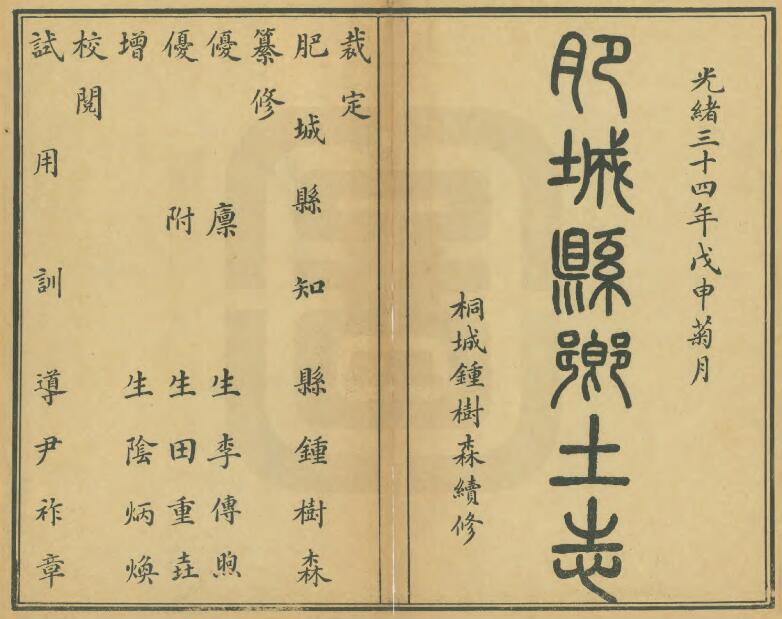 光緒三十四年戊申菊月
肥城縣鄉土志
桐城鍾樹森續修
裁定
肥城縣知縣鍾樹森
纂修
優廩生李傳煦
優附生田重垚
增生陰炳煥
校閱
試用訓導尹祚章